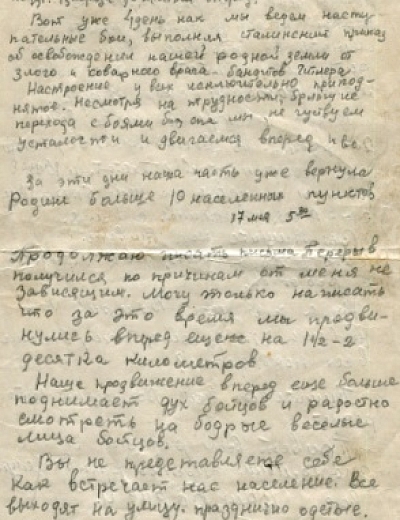 Вот уже 4 день как мы ведем насту
пательные бои, выполняя сталинский приказ
об освобождении нашей родной земли от
злого и коварного врага - бандитов Гитлера
Настроение у всех исключительно припод-
нятое. Несмотря на трудности, большие
перехода с боями без сна мы не чувствуем
усталости и двигаемся вперед и все
За эти дни наша часть уже вернула
Родине больше 10 населенных пунктов
17 мая 5 30
Продолжаю писать письмо Перерыв
получился по причинам от меня не
зависящим. Могу только написать
что за это время мы продви-
нулись вперед еще на 1 1/2 - 2
десятка километров
Наше продвижение вперед еще больше
поднимает дух бойцов и радостно
смотреть на бодрые веселые
лица бойцов.
Вы не представляете себе
как встречает нас население. Все
выходят на улицу празднично одетые.